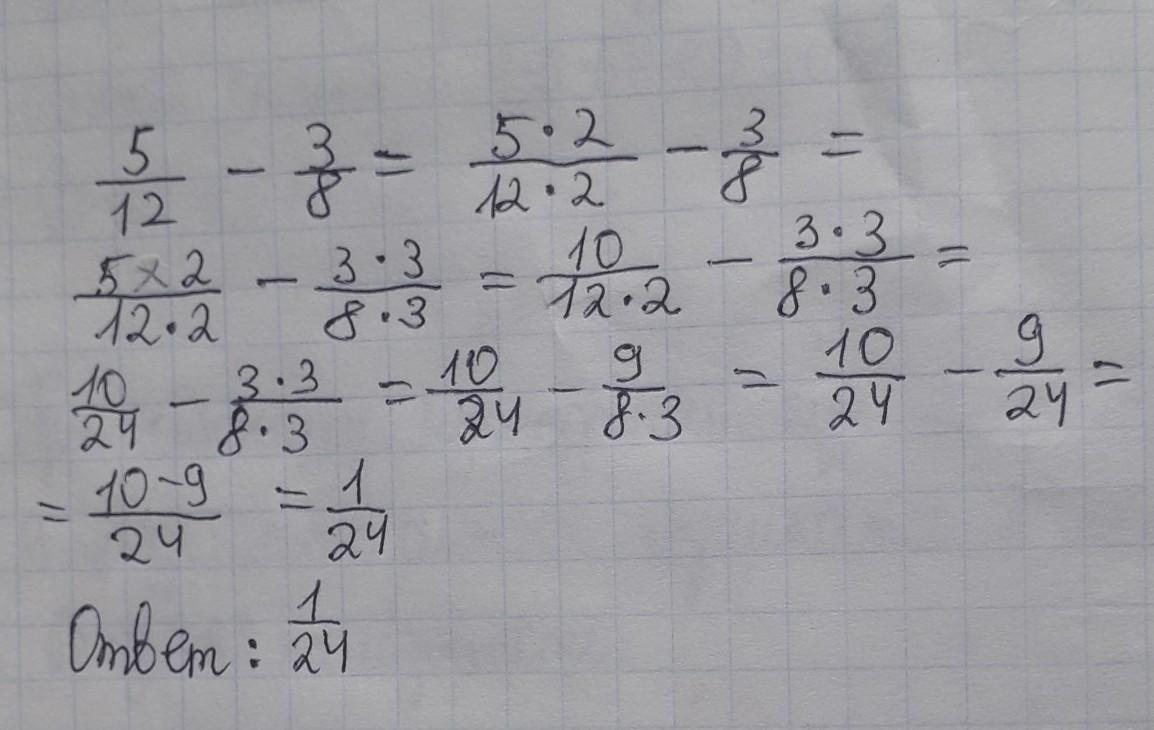 5/12 - 3/8 = 5·2/12·2 - 3/8 =
5×2/12·2 - 3·3/8·3 = 10/12·2 - 3·3/8·3 =
10/24 - 3·3/8·3 = 10/24 - 9/8·3 = 10/24 - 9/24 =
= 10-9/24 = 1/24
Ответ: 1/24